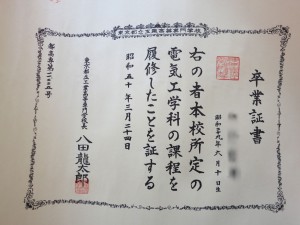 東京都立工業高等専門学校
卒業証書
昭和二十九年八月十日生
右の者本校所定の
電気工学科の課程を
履修したことを証する
昭和五十年三月二十四日
東京都立工業高等専門学校長
八田龍太郎